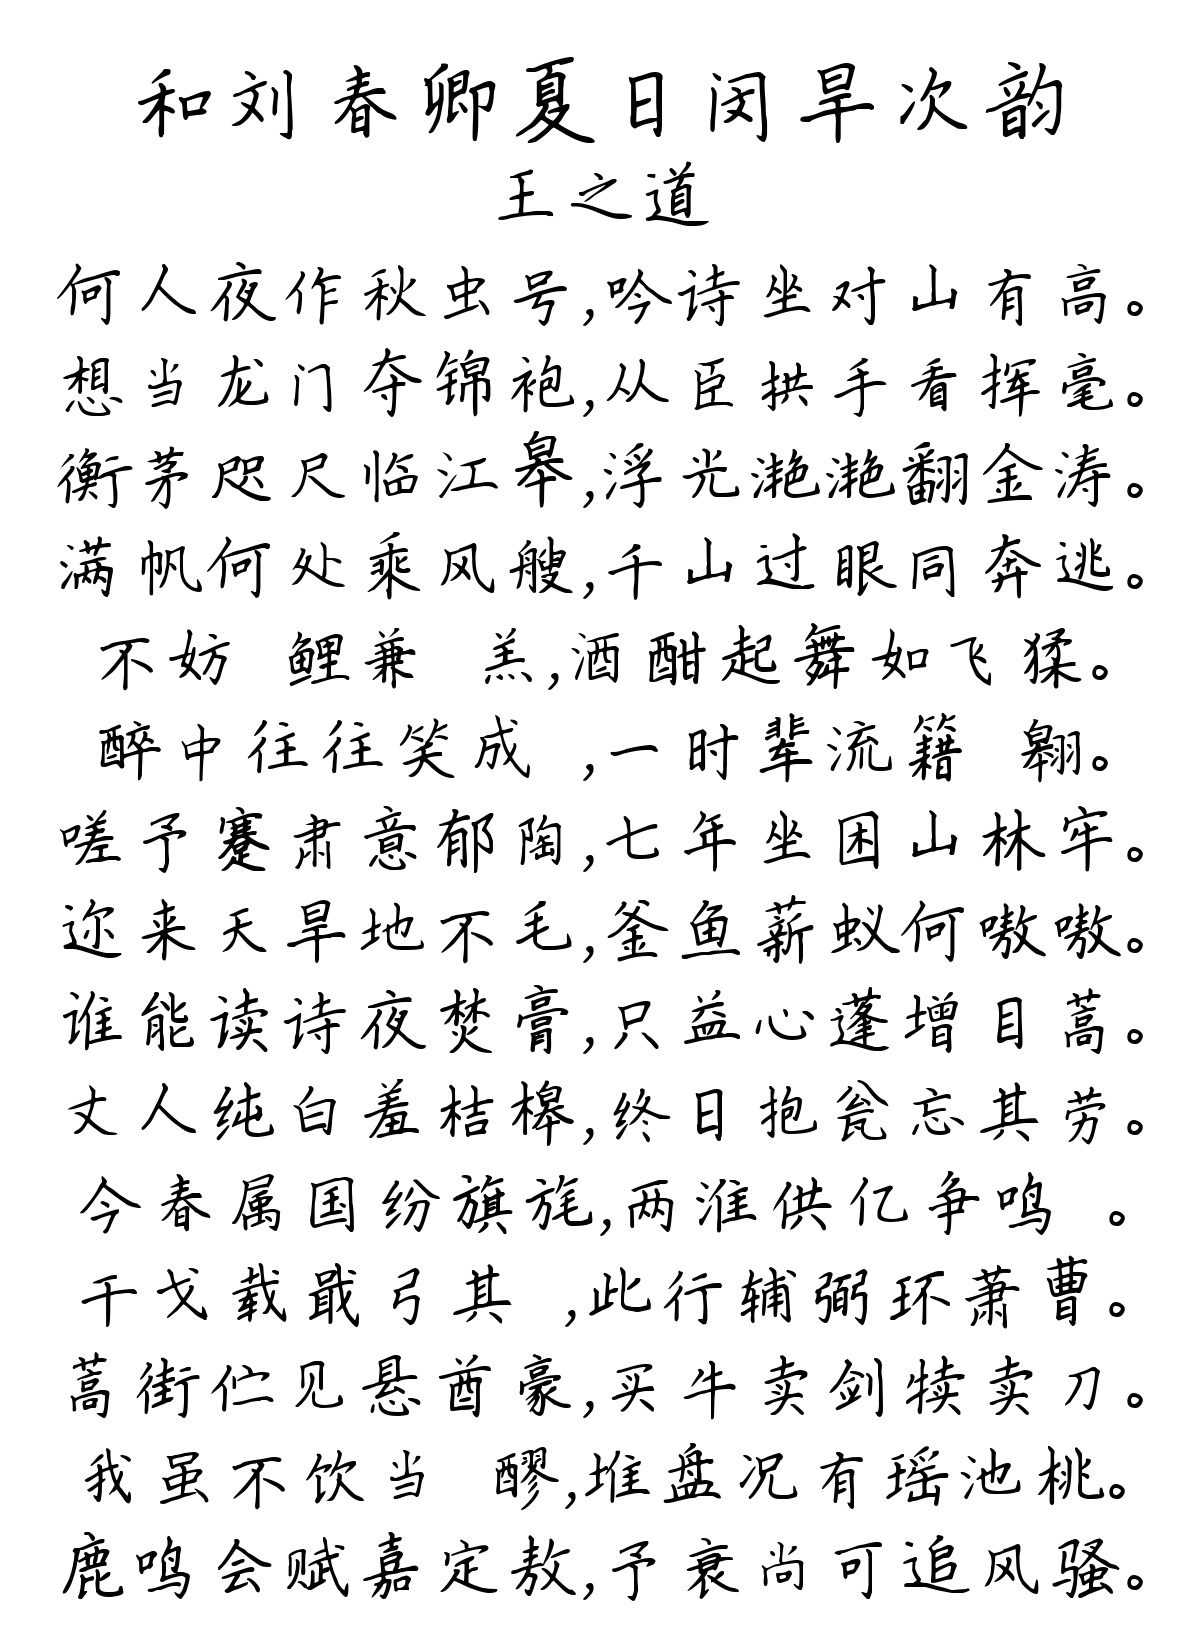 和刘春卿夏日闵旱次韵
王之道
何人夜作秋虫号,吟诗坐对山有高。
想当龙门夺锦袍,从臣拱手看挥毫。
衡茅咫尺临江皋,浮光滟滟翻金涛。
满帆何处乘风艘,千山过眼同奔逃。
不妨 鲤兼 羔,酒酣起舞如飞猱。
醉中往往笑成 ,一时辈流籍 翱。
嗟予蹇肃意郁陶,七年坐困山林牢。
迩来天旱地不毛,釜鱼薪蚁何嗷嗷。
谁能读诗夜焚膏,只益心蓬增目蒿。
丈人纯白羞桔槔,终日抱瓮忘其劳。
今春属国纷旗旄,两淮供亿争鸣 。
干戈载戢弓其 ,此行辅弼环萧曹。
蒿街伫见悬酋豪,买牛卖剑犊卖刀。
我虽不饮当 醪,堆盘况有瑶池桃。
鹿鸣会赋嘉定敖,予衰尚可追风骚。